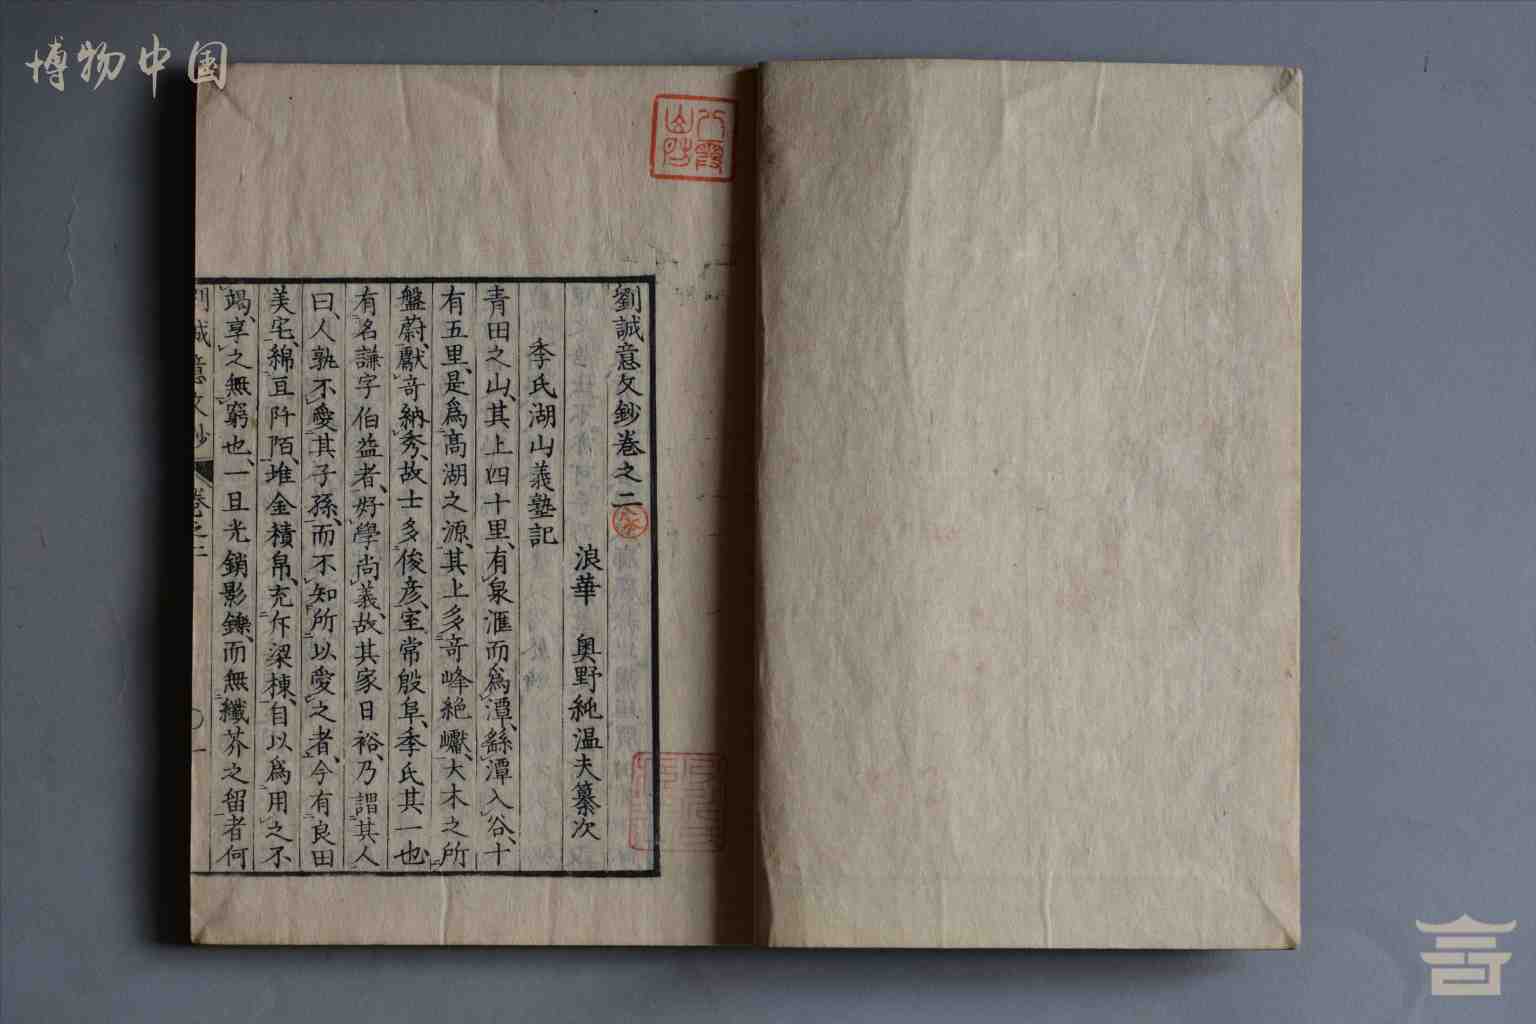 博物中国
劉誠意文鈔卷之二
浪華 奥野純温夫纂次
季氏湖山義塾記
青田之山、其上四十里、有泉滙而爲潭、繇潭入谷、十
有五里、是爲高湖之源、其上多奇峰絶巘、大木之所
盤蔚、獻奇納秀、故士多俊彦、室常殷阜、季氏其一也、
有名謙字伯益者、好學尚義、故其家日裕、乃謂其人
曰、人孰不愛其子孫、而不知所以愛之者、今有良田
美宅、綿亘阡陌、堆金積帛、充仞梁棟、自以爲用之不
竭、享之無窮也、一旦光銷影鑠、而無纖芥之留者何
劉誠意文鈔 卷之二 〇一